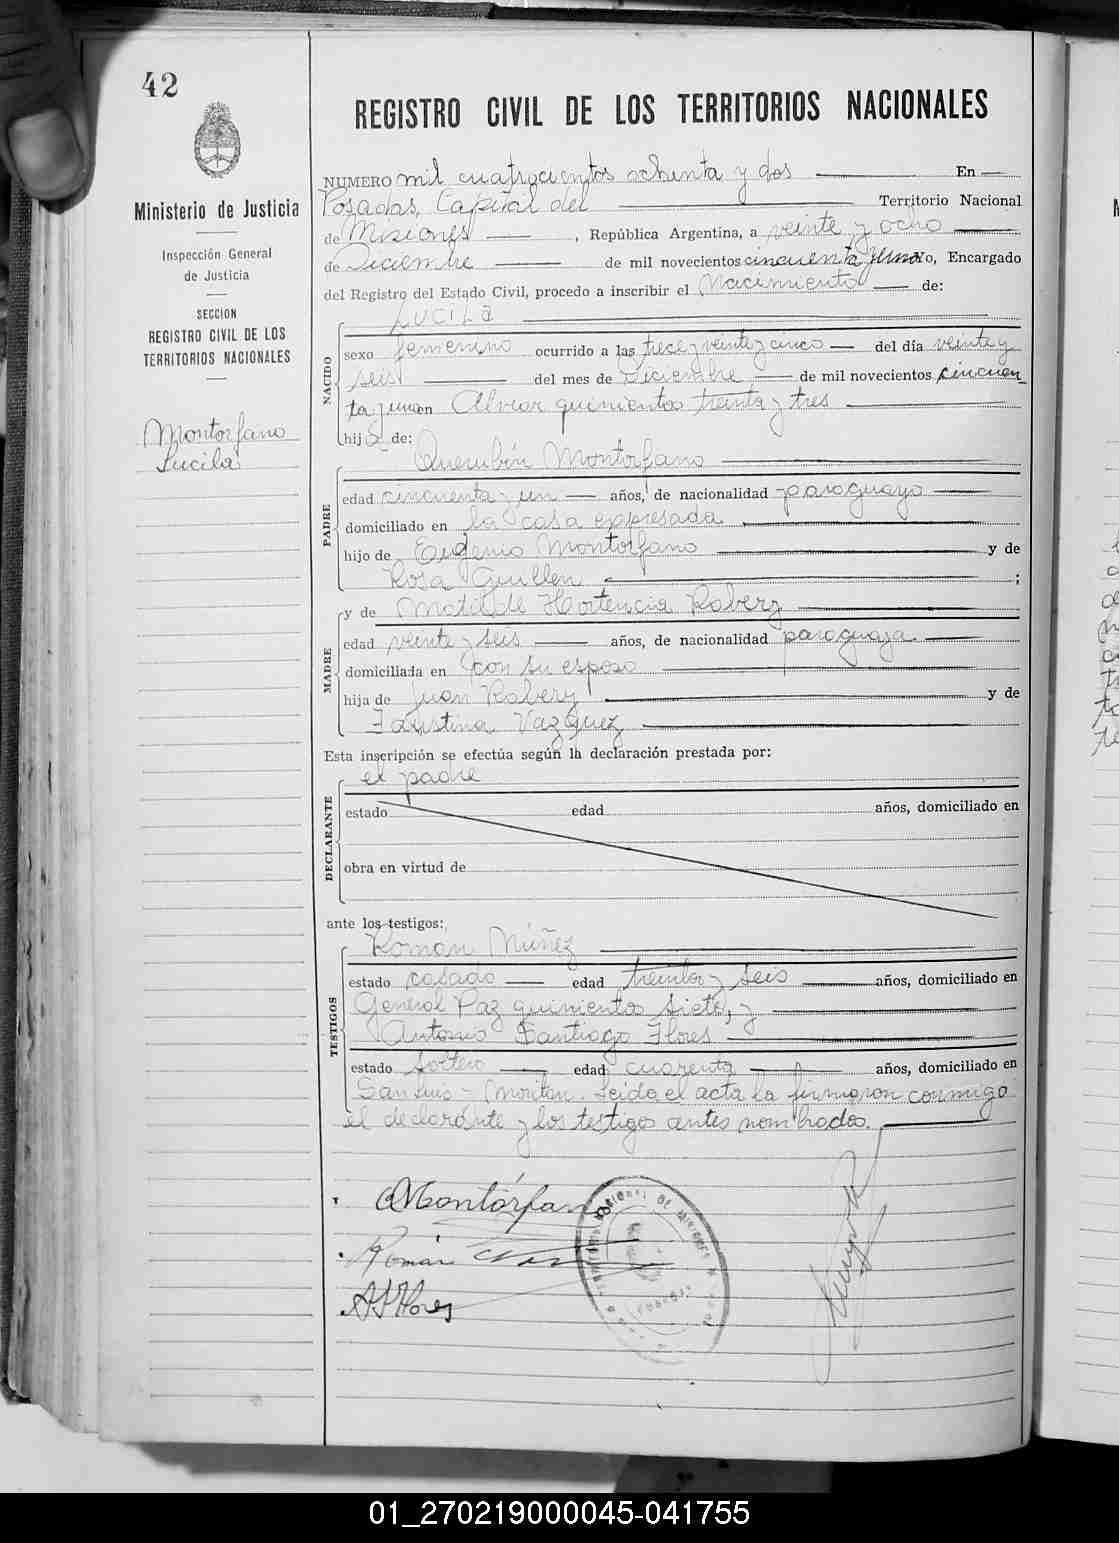 42
Ministerio de Justicia
Inspección General
de Justicia
SECCION
REGISTRO CIVIL DE LOS
TERRITORIOS NACIONALES
Montorfano
Lucila
REGISTRO CIVIL DE LOS TERRITORIOS NACIONALES
NUMERO mil cuatrocientos ochenta y dos En
Posadas, Capital del Territorio Nacional
de Misiones, República Argentina, a veinte y ocho
de Diciembre de mil novecientos cincuenta y uno Yo, Encargado
del Registro del Estado Civil, procedo a inscribir el Nacimiento de:
NACIDO
LUCILA
sexo femenino ocurrido a las trece y veinte y cinco del día veinte y
seis del mes de Diciembre de mil novecientos cincuen
ta y uno en Alvear quinientos treinta y tres
hija de:
PADRE
Querubín Montorfano
edad cincuenta y un años, de nacionalidad paraguayo
domiciliado en la casa expresada
hijo de Eugenio Montorfano y de
Rosa Guillen ;
MADRE
y de Matilde Hortencia Robery
edad veinte y seis años, de nacionalidad paraguaya
domiciliada en con su esposo
hija de Juan Robery y de
Faustina Vazquez
Esta inscripción se efectúa según la declaración prestada por:
DECLARANTE
el padre
estado edad años, domiciliado en
obra en virtud de
ante los testigos:
TESTIGOS
Roman Núñez
estado casado edad treinta y seis años, domiciliado en
General Paz quinientos siete, y
Antonio Santiago Flores
estado soltero edad cuarenta años, domiciliado en
San Luis - Leida el acta la firmaron conmigo
el declarante y los testigos antes nombrados.
Montórfano
Román
A S Flores
01_270219000045-041755